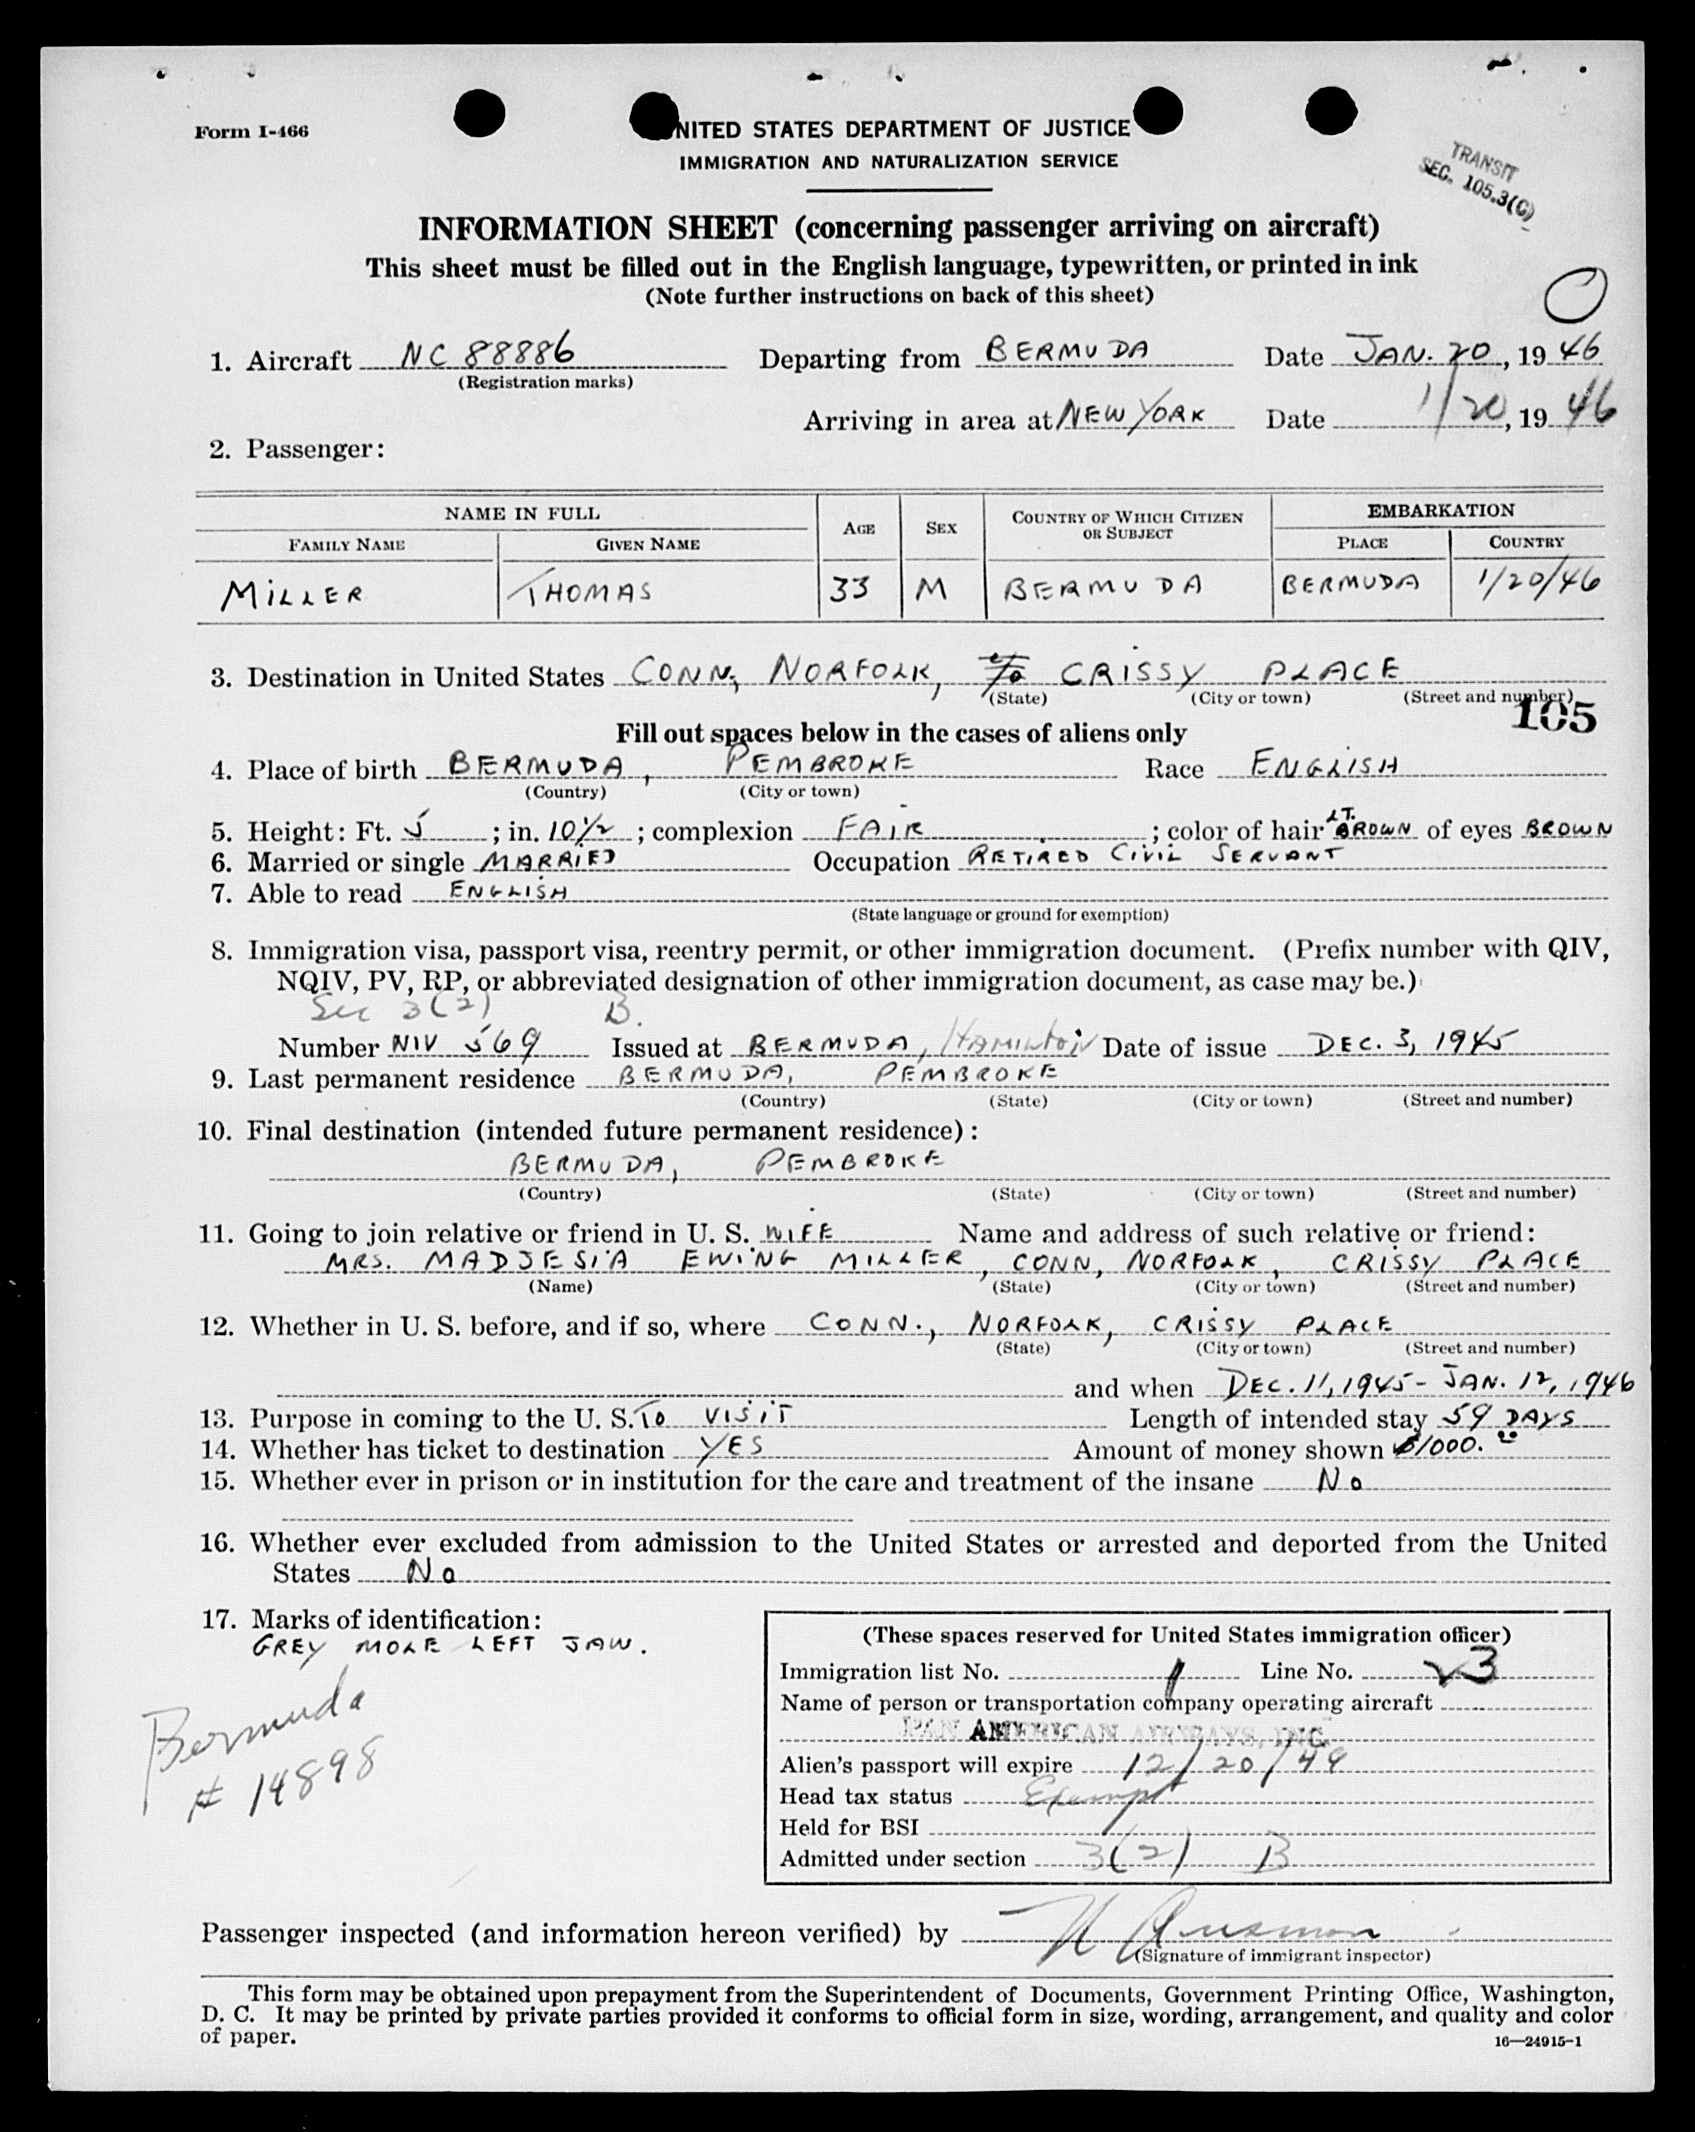 Form I-466
UNITED STATES DEPARTMENT OF JUSTICE
IMMIGRATION AND NATURALIZATION SERVICE
TRANSIT
SEC. 105.3(C)
INFORMATION SHEET (concerning passenger arriving on aircraft)
This sheet must be filled out in the English language, typewritten, or printed in ink
(Note further instructions on back of this sheet)
1. Aircraft NC 88886 Departing from BERMUDA Date JAN. 20, 19 46
(Registration marks)
Arriving in area at NEW YORK Date 1/20, 19 46
2. Passenger:
NAME IN FULL AGE SEX COUNTRY OF WHICH CITIZEN OR SUBJECT EMBARKATION
FAMILY NAME GIVEN NAME PLACE COUNTRY
MILLER THOMAS 33 M BERMUDA BERMUDA 1/20/46
3. Destination in United States CONN, NORFOLK, c/o CRISSY PLACE
(State) (City or town) (Street and number)
105
Fill out spaces below in the cases of aliens only
4. Place of birth BERMUDA, PEMBROKE Race ENGLISH
(Country) (City or town)
5. Height: Ft. 5; in. 10½; complexion FAIR; color of hair LT. BROWN of eyes BROWN
6. Married or single MARRIED Occupation RETIRED CIVIL SERVANT
7. Able to read ENGLISH
(State language or ground for exemption)
8. Immigration visa, passport visa, reentry permit, or other immigration document. (Prefix number with QIV,
NQIV, PV, RP, or abbreviated designation of other immigration document, as case may be.)
Sec 3(2) B.
Number NIV 569 Issued at BERMUDA, HAMILTON Date of issue DEC. 3, 1945
9. Last permanent residence BERMUDA, PEMBROKE
(Country) (State) (City or town) (Street and number)
10. Final destination (intended future permanent residence):
BERMUDA, PEMBROKE
(Country) (State) (City or town) (Street and number)
11. Going to join relative or friend in U. S. WIFE Name and address of such relative or friend:
MRS. MADJESIA EWING MILLER, CONN, NORFOLK, CRISSY PLACE
(Name) (State) (City or town) (Street and number)
12. Whether in U. S. before, and if so, where CONN., NORFOLK, CRISSY PLACE
(State) (City or town) (Street and number)
and when DEC. 11, 1945 - JAN. 12, 1946
13. Purpose in coming to the U. S. TO VISIT Length of intended stay 59 DAYS
14. Whether has ticket to destination YES Amount of money shown $1000.00
15. Whether ever in prison or in institution for the care and treatment of the insane No
16. Whether ever excluded from admission to the United States or arrested and deported from the United
States No
17. Marks of identification:
GREY MOLE LEFT JAW.
Bermuda
# 14898
(These spaces reserved for United States immigration officer)
Immigration list No. 1 Line No. 3
Name of person or transportation company operating aircraft
PAN AMERICAN AIRWAYS, INC.
Alien's passport will expire 12/20/49
Head tax status Exempt
Held for BSI
Admitted under section 3(2) B
Passenger inspected (and information hereon verified) by
(Signature of immigrant inspector)
This form may be obtained upon prepayment from the Superintendent of Documents, Government Printing Office, Washington,
D. C. It may be printed by private parties provided it conforms to official form in size, wording, arrangement, and quality and color
of paper.
16—24915-1